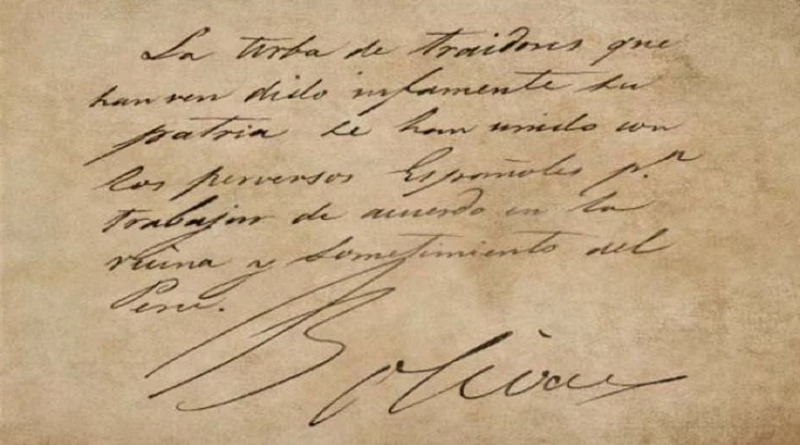 La turba de traidores que
han ven dido infamente su
patria se han unido con
los perversos Españoles p.ª
trabajar de acuerdo en la
ruina y sometimiento del
Perú.
Bolivar